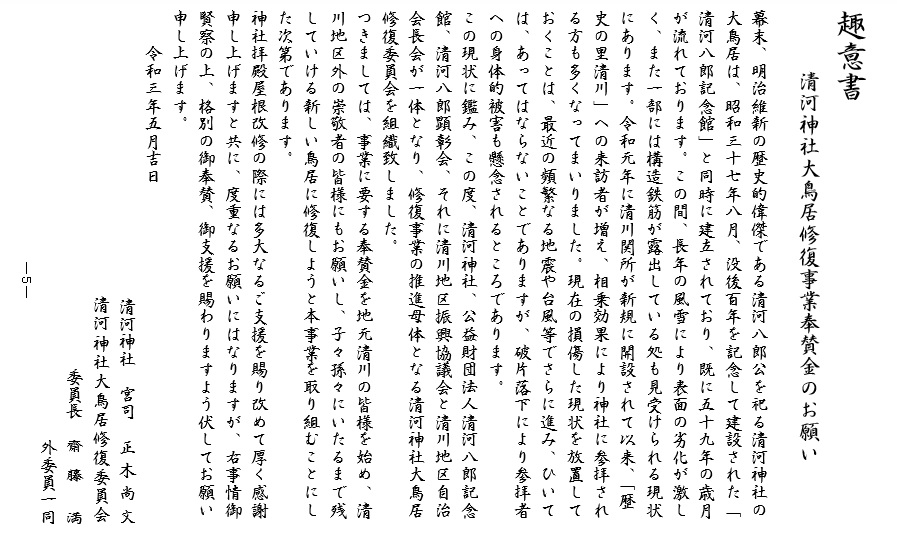 趣意書
清河神社大鳥居修復事業奉賛金のお願い
幕末、明治維新の歴史的偉傑である清河八郎公を祀る清河神社の
大鳥居は、昭和三十七年八月、没後百年を記念して建設された「
清河八郎記念館」と同時に建立されており、既に五十九年の歳月
が流れております。この間、長年の風雪により表面の劣化が激し
く、また一部には構造鉄筋が露出している処も見受けられる現状
にあります。令和元年に清川関所が新規に開設されて以来、「歴
史の里清川」への来訪者が増え、相乗効果により神社に参拝され
る方も多くなってまいりました。現在の損傷した現状を放置して
おくことは、最近の頻繁なる地震や台風等でさらに進み、ひいて
は、あってはならないことでありますが、破片落下により参拝者
への身体的被害も懸念されるところであります。
この現状に鑑み、この度、清河神社、公益財団法人清河八郎記念
館、清河八郎顕彰会、それに清川地区振興協議会と清川地区自治
会長会が一体となり、修復事業の推進母体となる清河神社大鳥居
修復委員会を組織致しました。
つきましては、事業に要する奉賛金を地元清川の皆様を始め、清
川地区外の崇敬者の皆様にもお願いし、子々孫々にいたるまで残
していける新しい鳥居に修復しようと本事業を取り組むことにし
た次第であります。
神社拝殿屋根改修の際には多大なるご支援を賜り改めて厚く感謝
申し上げますと共に、度重なるお願いにはなりますが、右事情御
賢察の上、格別の御奉賛、御支援を賜わりますよう伏してお願い
申し上げます。
令和三年五月吉日
清河神社　宮司　正木尚文
清河神社大鳥居修復委員会
委員長　齋藤　満
外委員一同
―5―